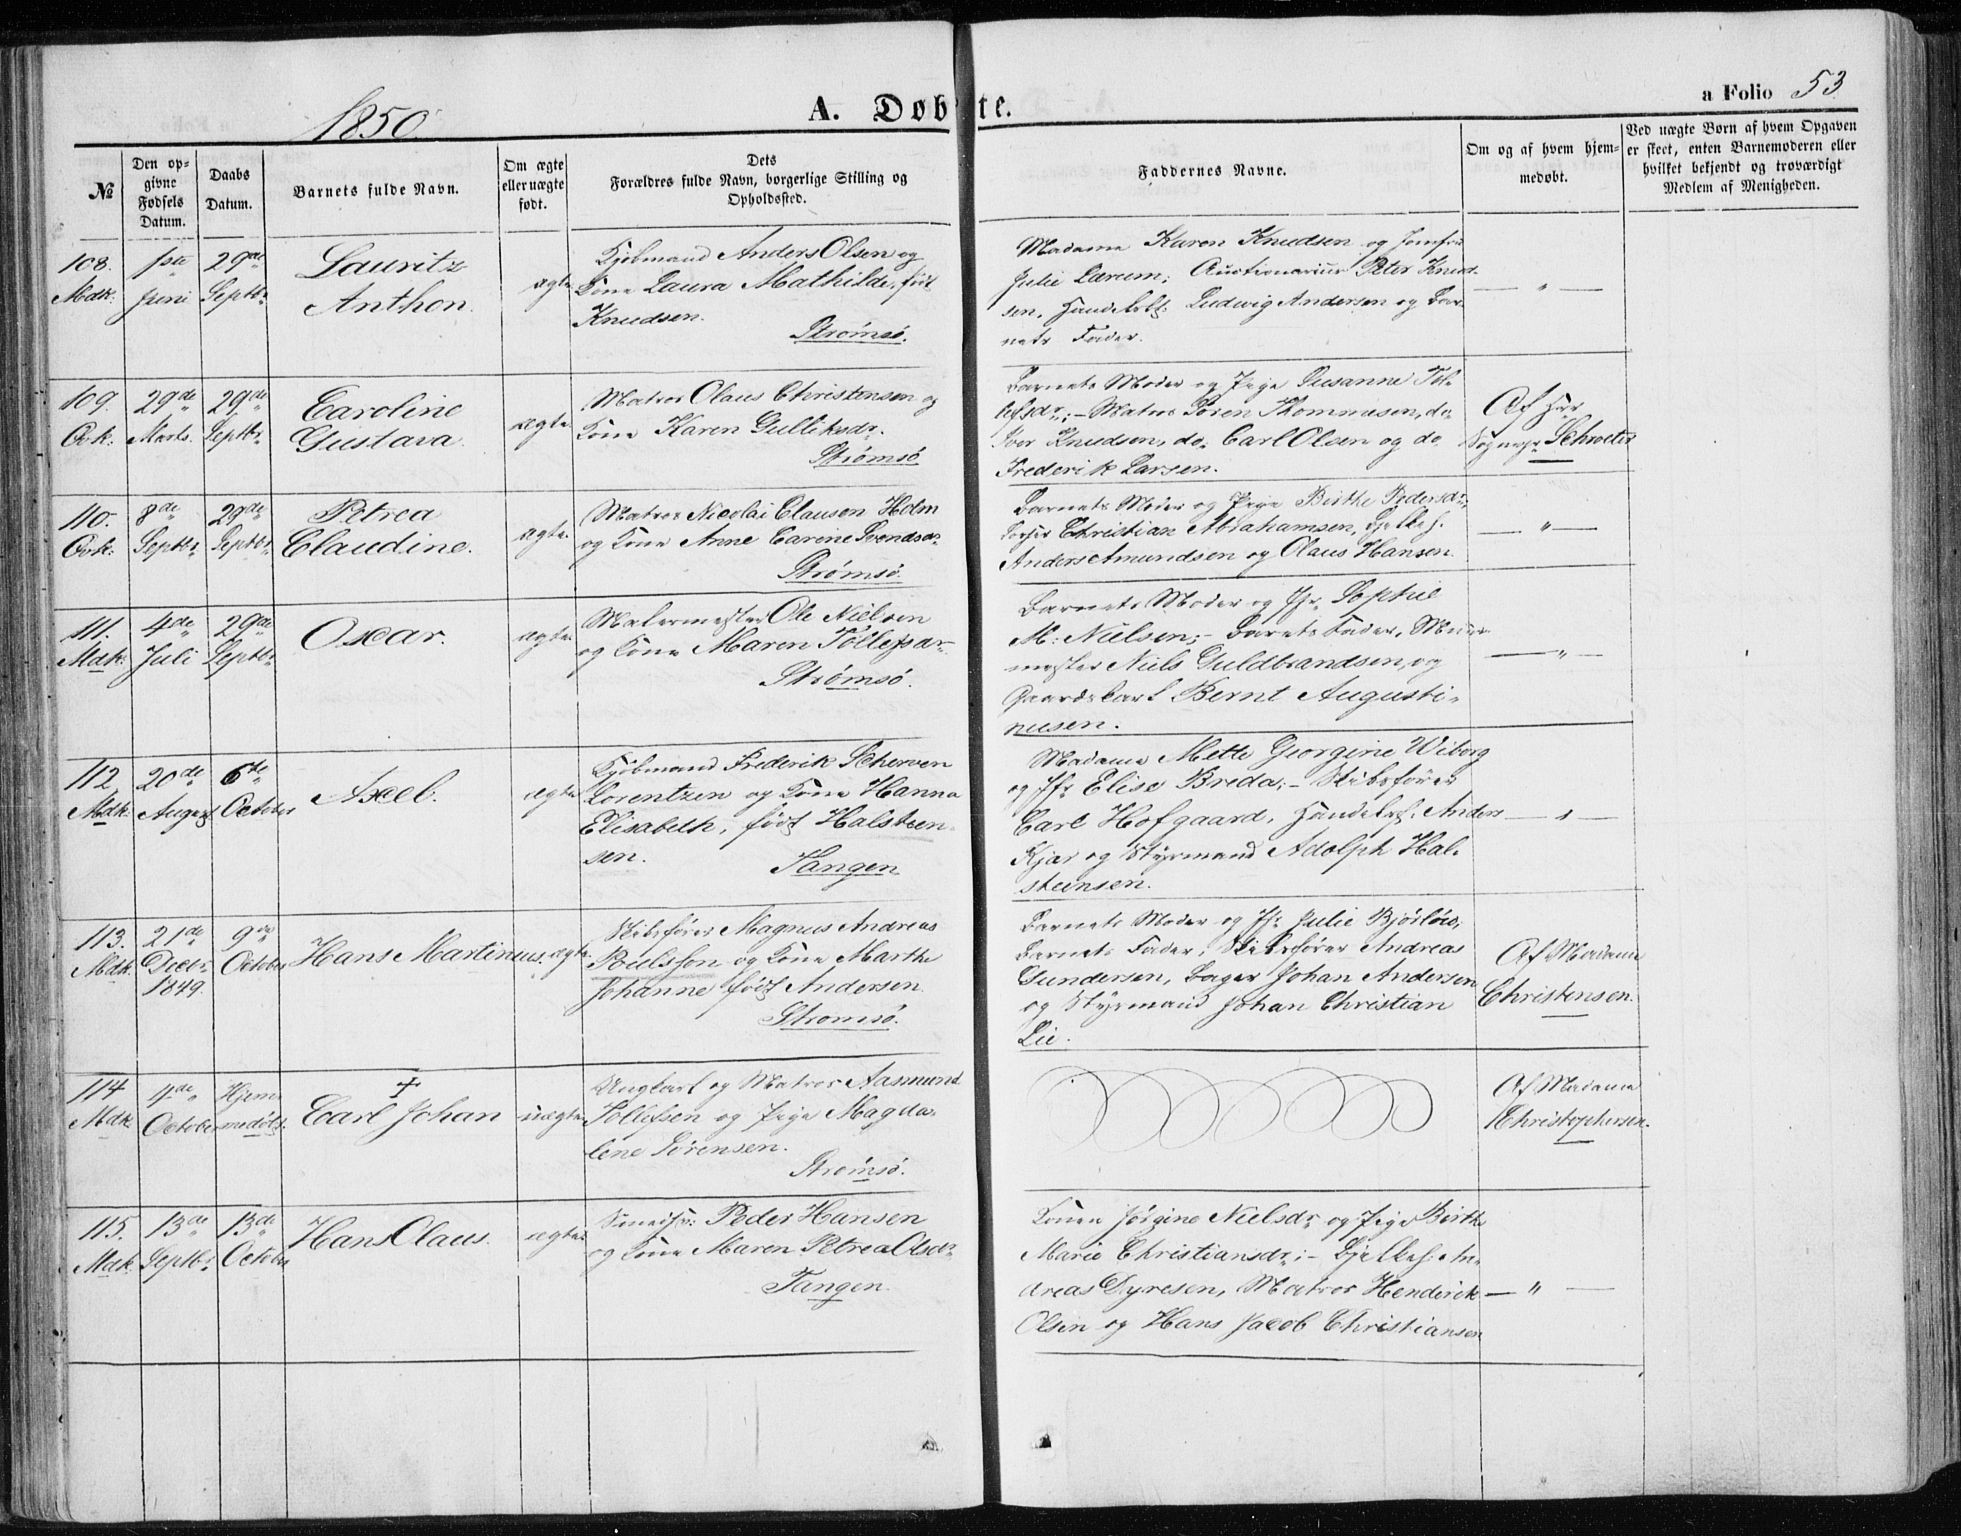 1850
A. Døbte.
a Folio 53
№
Den op-
givne
Fødsels
Datum.
Daabs
Datum.
Barnets fulde Navn.
Om ægte
eller uægte
født.
Dets
Forældres fulde Navn, borgerlige Stilling og
Opholdssted.
Faddernes Navne.
Om og af hvem hjem-
medøbt.
Ved uægte Børn af hvem Opgaven
er skeet, enten Barnemoderen eller
hvilket bekjendt og troværdigt
Medlem af Menigheden.
108.
Mdk.
1ste
Juni
29de
Septbr
Lauritz
Anthon.
ægte
Kjøbmand Anders Olsen og
Kone Laura Mathilde, født
Knudsen.
Strømsø.
Madame Karen Knudsen og Jomfru
Julie Lærum; Auctionarius Peter Knud-
sen, Handelsb. Ludwig Andersen og Bar-
nets Fader.
— " —
109.
Qvk.
29de
Marts.
29de
Septbr
Caroline
Gustava.
ægte
Matros Olaus Christensen og
Kone Karen Gulliksdr.
Strømsø
Barnets Moder og Pige Susanne Tol-
lefsdr; - Matros Søren Thommesen, do
Iver Knudsen, do. Carl Olsen og do
Frederik Larsen.
Af Hr
Sognepr Schroeter
110.
Qvk.
8de
Septbr
29de
Septbr
Petrea
Claudine.
ægte.
Matros Nicolai Clausen Holm
og Kone Anne Carine Svendsdr
Strømsø.
Barnets Moder og Pige Birthe Pedersdr;
Christian Abrahamsen,
Anders Amundsen og Olaus Hansen.
— " —
111.
Mdk.
4de
Juli
29de
Septbr
Oscar.
ægte
Malermester Ole Nielsen
og Kone Maren Tollefsdr
Strømsø.
Barnets Moder og Jfr. Sophie
M. Nielsen; - Barnets Fader, Muur-
mester Niels Guldbrandsen, og
Gaardskarl Bernt Augusti-
nusen.
— " —
112
Mdk.
20de
August
6te
October
Axel.
ægte
Kjøbmand Frederik Scherven
Lorentzen og Kone Hanna
Elisabeth, født Halsteen-
sen.
Tangen
Madame Mette Georgine Wiborg
og Jfr Elise Breda; - Skibsfører
Carl Hofgaard, Handelsb. Anders
Kjær og Styrmand Adolph Hal-
steensen.
— " —
113.
Mdk.
21de
Decbr
1849.
9de
October
Hans Martinus.
ægte
Skibsfører Magnus Andreas
og Kone Marthe
Johanne født Andersen.
Strømsø.
Barnets Moder og Jfr Julie
Barnets Fader, Skibsfører Andreas
Gundersen, Bager Johan Andersen
og Styrmand Johan Christian
Lie.
Af Madame
Christensen.
114
Mdk
4de
October
Hjem-
medøbt.
+
Carl Johan
uægte
Ungkarl og Matros Aasmund
Tollefsen og Pige Magda-
lene Sørensen.
Strømsø.
Af Madame
Christophersen.
115.
Mdk
13de
Septbr
13de
October
Hans Olaus.
ægte
Smedsv: Peder Hansen
og Kone Maren Petrea Olsdr
Tangen.
Konen Jørgine Nielsdr og Pige Birthe
Marie Christiansdr; - An-
dreas Dyresen, Matros Henderik
Olsen og Hans Jacob Christiansen
— " —